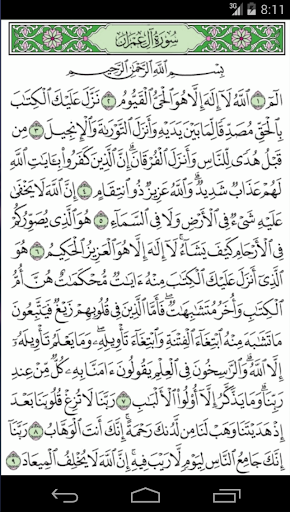 3G 8:11
سورة آل عمران
بسم الله الرحمن الرحيم
الم ١ الله لا إله إلا هو الحي القيوم ٢ نزل عليك الكتب
بالحق مصدقا لما بين يديه وأنزل التورىة والإنجيل ٣ من
قبل هدى للناس وأنزل الفرقان إن الذين كفروا بـايت الله
لهم عذاب شديد والله عزيز ذو انتقام ٤ إن الله لا يخفى
عليه شىء في الأرض ولا في السماء ٥ هو الذي يصوركم
في الأرحام كيف يشاء لا إله إلا هو العزيز الحكيم ٦ هو
الذي أنزل عليك الكتب منه ءايت محكمت هن أم
الكتب وأخر متشبهت فأما الذين في قلوبهم زيغ فيتبعون
ما تشبه منه ابتغاء الفتنة وابتغاء تأويله وما يعلم تأويله إلا
الله والرسخون في العلم يقولون ءامنا به كل من عند
ربنا وما يذكر إلا أولوا الألبب ٧ ربنا لا تزغ قلوبنا بعد
إذ هديتنا وهب لنا من لدنك رحمة إنك أنت الوهاب ٨ ربنا
إنك جامع الناس ليوم لا ريب فيه إن الله لا يخلف الميعاد ٩